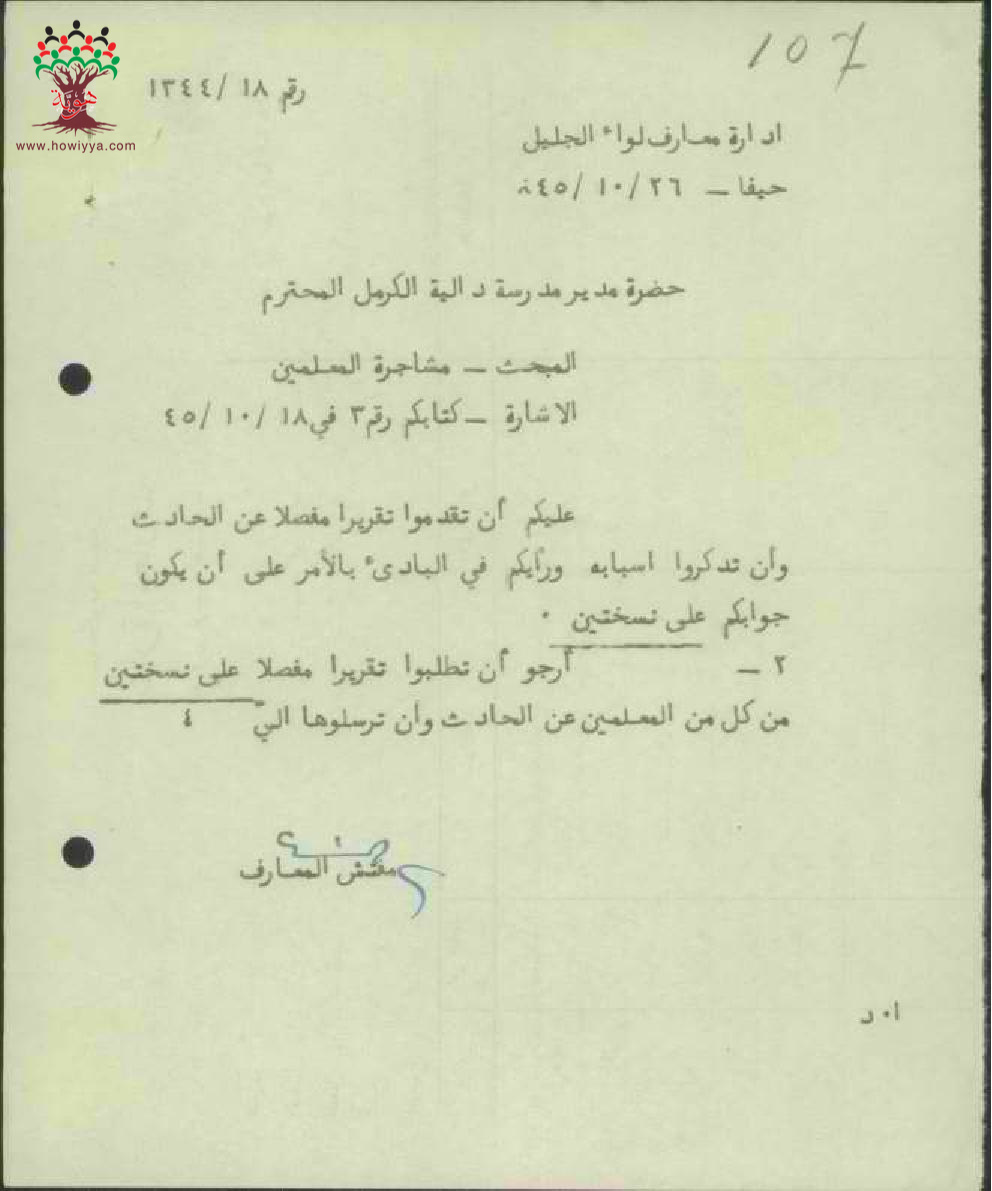 107
هوية
www.howiyya.com
رقم ١٨ /١٣٤٤
ادارة معارف لواء الجليل
حيفا — ٢٦ /١٠ /٤٥
حضرة مدير مدرسة دالية الكرمل المحترم
المبحث — مشاجرة المعلمين
الاشارة — كتابكم رقم ٣ في ١٨ /١٠ /٤٥
عليكم أن تقدموا تقريرا مفصلا عن الحادث
وأن تدكروا اسبابه ورأيكم في البادئ بالأمر على أن يكون
جوابكم على نسختين ٠
٢ — أرجو أن تطلبوا تقريرا مفصلا على نسختين
من كل من المعلمين عن الحادث وان ترسلوها الي ٤
مفتش المعارف
ا٠ د